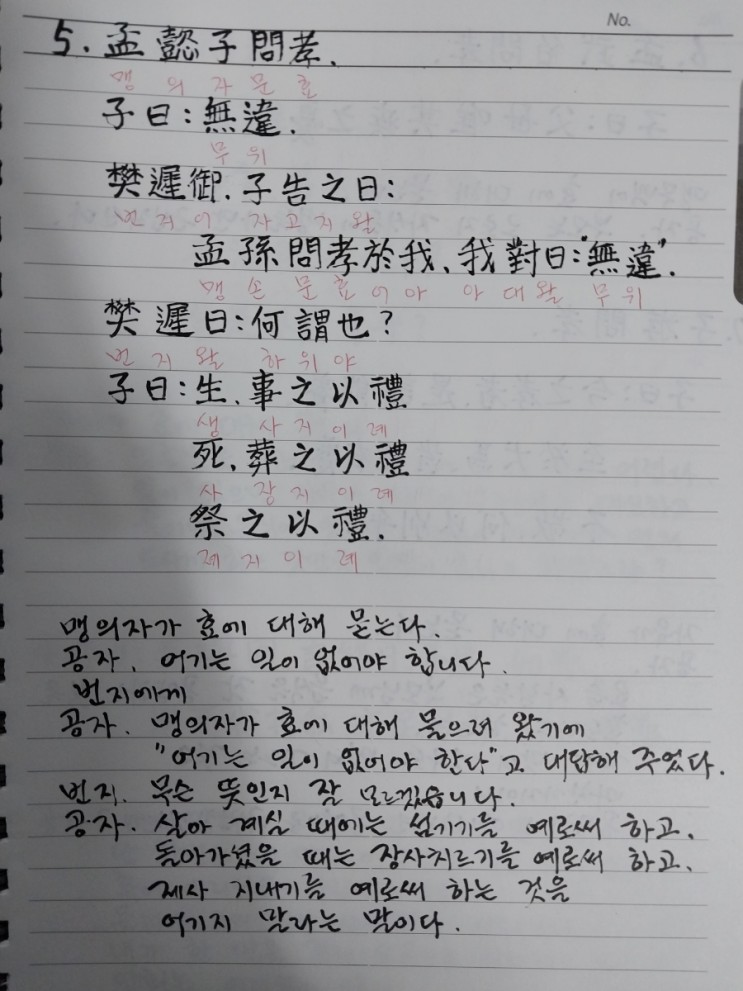 No.
5. 孟懿子問孝.
맹 의 자 문 효
子曰:無違.
무 위
樊遲御. 子告之曰:
번 지 어 자 고 지 왈
孟孫問孝於我, 我對曰:"無違".
맹 손 문 효 어 아 아 대 왈 무 위
樊遲曰:何謂也?
번 지 왈 하 위 야
子曰:生, 事之以禮
생 사 지 이 례
死, 葬之以禮
사 장 지 이 례
祭之以禮.
제 지 이 례
맹의자가 효에 대해 묻는다.
공자. 어기는 일이 없어야 합니다.
번지에게
공자. 맹의자가 효에 대해 물으려 왔기에
"어기는 일이 없어야 한다"고 대답해 주었다.
번지. 무슨 뜻인지 잘 모르겠습니다.
공자. 살아 계실 때에는 섬기기를 예로써 하고,
돌아가셨을 때는 장사치르기를 예로써 하고,
제사 지내기를 예로써 하는 것을
어기지 말라는 말이다.